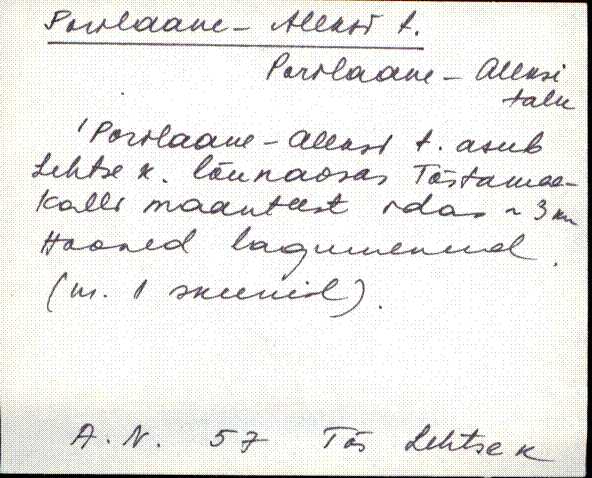 Porilaane - Alleksi t.
Porilaane - Alleksi
talu
'Porilaane - Alleksi t. asub
Lehtse k. lõunaosas Tõstamaa-
Kalli maanteest idas ~ 3 km
Hooned lagunenud.
(nr. 1 skeemil).
A. N. 57 Tõs Lehtse k